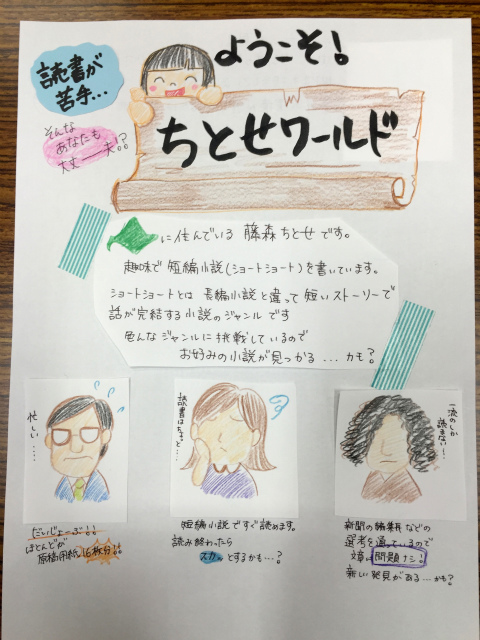 読書が
苦手...
ようこそ!
そんな
あなたも
大丈――夫!?
ちとせワールド
に住んでいる 藤森ちとせ です。
趣味で 短編小説(ショートショート)を書いています。
ショートショートとは 長編小説と違って 短いストーリーで
話が完結する小説のジャンルです
色んなジャンルに挑戦しているので
お好みの小説が見つかる...かも?
忙しい....
だいじょーぶ!!
ほとんどが
原稿用紙16枚分!!
読書はちょっと...
短編小説ですぐ読めます。
読み終わったら
スカッとするかも...?
一流のしか
読まない...
新聞の編集長などの
選考を通っているので
文章は問題ナシ!
新しい発見がある...かも?